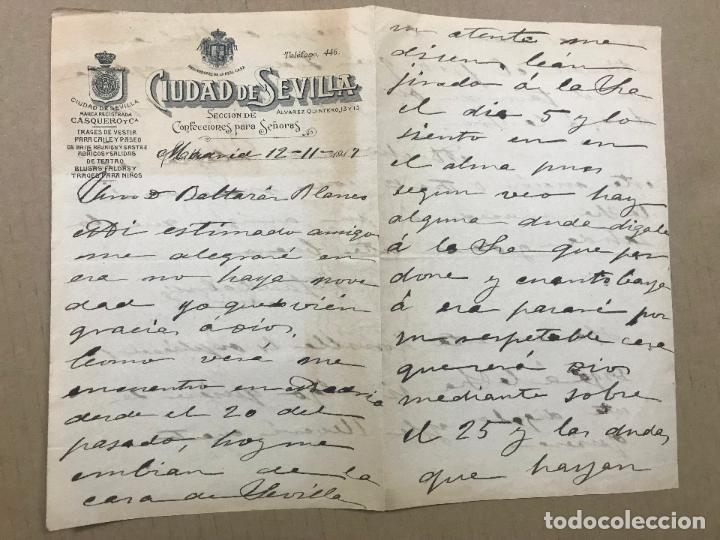 Teléfono, 446.
PROVEEDORES DE LA REAL CASA
CIUDAD DE SEVILLA
SECCION DE
ALVAREZ QUINTERO, 13 Y 15
Confecciones para Señoras
CIUDAD DE SEVILLA
MARCA REGISTRADA
CASQUERO Y Cª
TRAGES DE VESTIR
PARA CALLE Y PASEO
DE BAILE, REUNION Y SASTRE
ABRIGOS Y SALIDAS
DE TEATRO
BLUSAS, FALDAS Y
TRAGES PARA NIÑOS
Madrid 12-11-1917
D Baltasár Blanco
Mi estimado amigo
me alegraré en
esa no haya nove
dad yo quedo vién
gracias á Dios,
Como vera me
encuentro en Madrid
desde el 20 del
pasado, hoy me
embian de la
casa de Sevilla
su atenta me
disen leán
jirado á la Sra
el dia 5 y lo
siento en en
el alma pues
segun veo hay
alguna duda digale
á la Sra que per
done y cuanto baya
á esa pasaré por
su respetable casa
que será Dios
mediante sobre
el 25 y las dudas
que hayan
todocoleccion
todocoleccion.net